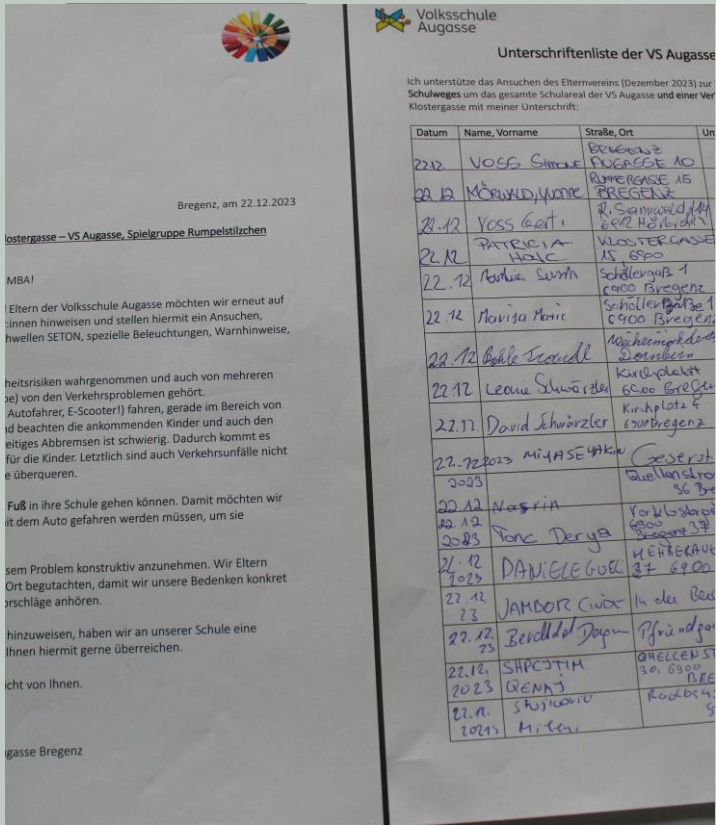 Bregenz, am 22.12.2023
lostergasse – VS Augasse, Spielgruppe Rumpelstilzchen
MBA!
Eltern der Volksschule Augasse möchten wir erneut auf
:innen hinweisen und stellen hiermit ein Ansuchen,
hwellen SETON, spezielle Beleuchtungen, Warnhinweise,
heitsrisiken wahrgenommen und auch von mehreren
e) von den Verkehrsproblemen gehört.
Autofahrer, E-Scooter!) fahren, gerade im Bereich von
d beachten die ankommenden Kinder und auch den
eitiges Abbremsen ist schwierig. Dadurch kommt es
für die Kinder. Letztlich sind auch Verkehrsunfälle nicht
e überqueren.
Fuß in ihre Schule gehen können. Damit möchten wir
it dem Auto gefahren werden müssen, um sie
sem Problem konstruktiv anzunehmen. Wir Eltern
Ort begutachten, damit wir unsere Bedenken konkret
orschläge anhören.
hinzuweisen, haben wir an unserer Schule eine
Ihnen hiermit gerne überreichen.
icht von Ihnen.
gasse Bregenz
Volksschule
Augasse
Unterschriftenliste der VS Augasse
Ich unterstütze das Ansuchen des Elternvereins (Dezember 2023) zur
Schulweges um das gesamte Schulareal der VS Augasse und einer Ver
Klostergasse mit meiner Unterschrift:
Datum Name, Vorname Straße, Ort Un
22.12. VOSS Simone BREGENZ AUGASSE 10
22.12 MÖRWALD, YVONNE RUMMERGASSE 15 BREGENZ
22.12 Voss Gert
22.12 PATRICIA KLOSTERGASSE 15, 6900
22.12 6900 Bregenz
22.12 Marija Matic 6900 Bregenz
22.12 Dornbirn
22.12 Leonie Schwärzler Kirchplatz 6900 Bregenz
22.12. David Schwärzler Kirchplatz 4 6900 Bregenz
22.12 2023
2023 36 Bre
22.12 Nasrin
22.12 2023 Derya 6900 Bregenz 37
21.12 2023 DANIELE 37 6900
22.12. 23 JAMBOR In der
22.12. 23
22.12. 2023 SHPEJTIM QENAJ QUELLENST 30, 6900 BRE
22.12. 2023